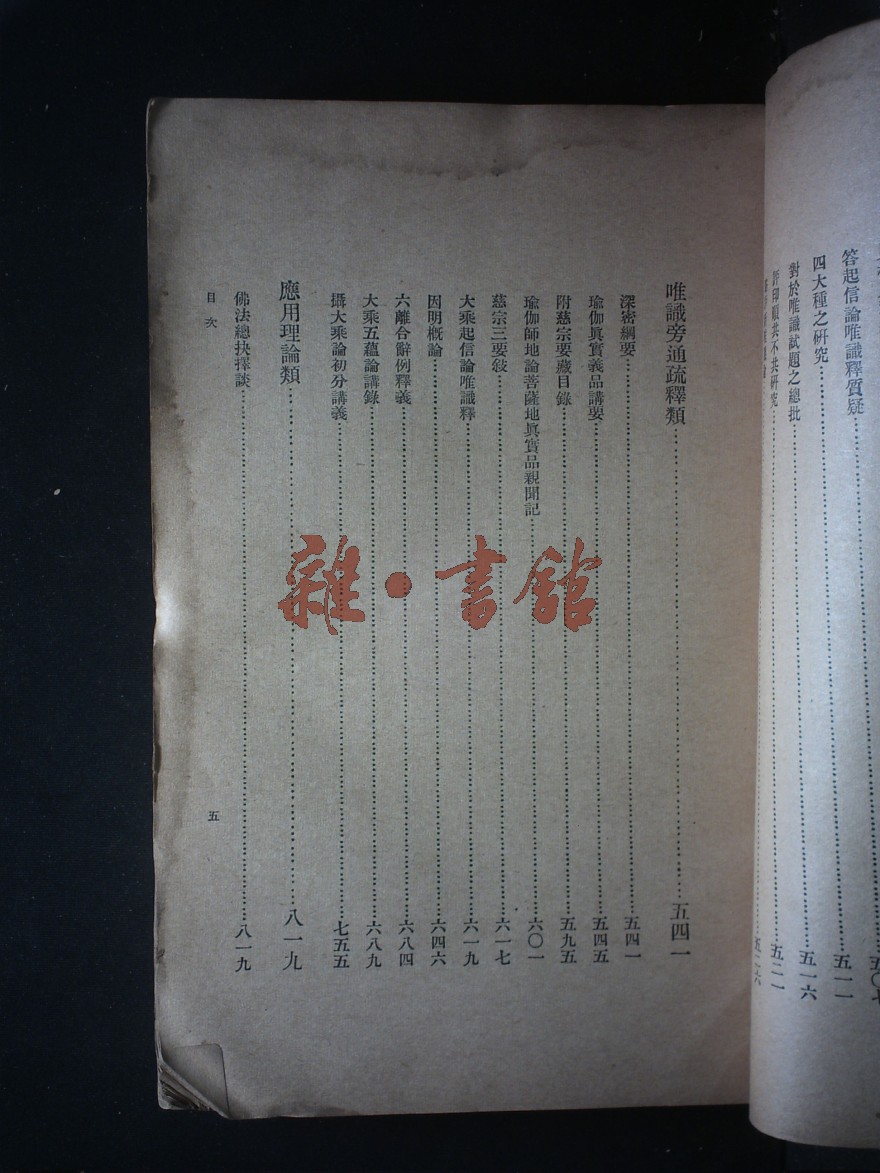 答起信論唯識釋質疑……五一一
四大種之研究……五一六
對於唯識試題之總批
評印順共不共研究……五二一
唯識旁通疏釋類……五四一
深密綱要……五四一
瑜伽眞實義品講要……五四五
附慈宗要藏目錄……五九五
瑜伽師地論菩薩地眞實品親聞記……六〇一
慈宗三要敍……六一七
大乘起信論唯識釋……六一九
因明概論……六四六
六離合辭例釋義……六八四
大乘五蘊論講錄……六八九
攝大乘論初分講義……七五五
應用理論類……八一九
佛法總抉擇談……八一九
目次
五
雜·書館